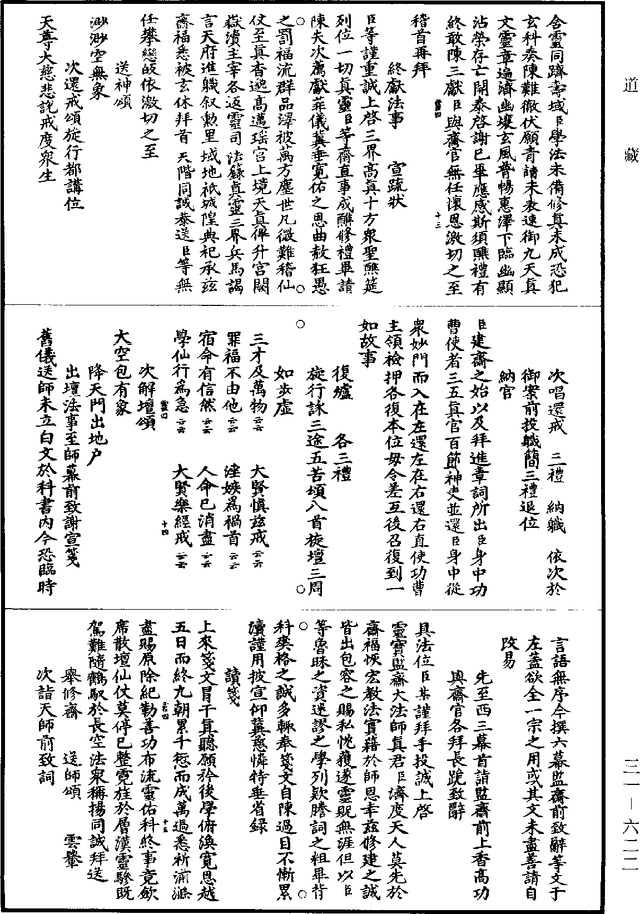 道藏
含靈同躋壽域臣學法未備修真未成恐犯
玄科奏陳難徹伏願青詞朱表速御九天真
文靈章遍濟幽壤玄風普暢惠澤下臨幽顯
沾榮存亡開泰啓謝已畢應感斯須醮禮有
終敢陳三獻臣與齋官無任懷恩激切之至
稽首再拜
終獻法事 宣疏狀
臣等謹重誠上啓三界高真十方衆聖醮筵
列位一切真靈臣等齋直事成醮修禮畢請
陳失次薦獻菲儀冀垂寬佑之恩曲赦狂愚
之罰福流群品澤被萬方塵世凡微難稽仙
仗至真杳邈高邁瑤宮上境天真俾升宮闕
嶽瀆主宰各返靈司法籙真靈三界兵馬謁
言天府進職叙勳里域地祇城隍典祀承茲
齋福悉被玄休拜首天階同誠奉送臣等無
任攀戀皈依激切之至
送神頌
渺渺空無象
次還戒頌旋行都講位
天尊大慈悲說戒度衆生
次唱還戒 三禮 納職 依次於
御案前投職簡三禮退位
納官
臣建齋之始以及拜進章詞所出臣身中功
曹使者三五真官百節神吏並還臣身中從
衆妙門而入在左還左在右還右直使功曹
主領檢押各復本位毋令差互後召復到一
如故事
復爐 各三禮
旋行詠三途五苦頌八首旋壇三周
如步虛
三才及萬物云云 大賢慎茲戒云云
罪福不由他云云 淫嫉爲禍首云云
宿命有信然云云 人命已消盡云云
學仙行爲急云云 大賢樂經戒云云
次解壇頌
大空包有象
降天門出地户
出壇法事至師幕前致謝宣箋
舊儀送師未立白文於科書内今恐臨時
言語無序今撰六幕監齋前致辭等文于
左蓋欲全一宗之用或其文未盡善請自
改易
先至西三幕首請監齋前上香高功
與齋官各拜長跪致辭
具法位臣某謹拜手投誠上啓
靈寶監齋大法師真君臣濟度天人莫先於
齋福恢宏教法實藉於師恩幸茲修建之誠
皆出包容之賜私忱獲遂靈貺無涯但以臣
等魯昧之資迷謬之學列款謄詞之粗畢背
科爽格之誠多輒奉箋文自陳過目不慚累
瀆謹用披宣仰冀慈憐特垂省録
讀箋
上來箋文冒干真聽願矜後學俯渙寬恩越
五日而終九朝累千愆而成萬過悉祈湔滌
盡賜原除紀勒善功布流靈佑科終事竟歛
席散壇仙仗莫停已整霓旌於層漢靈驂既
駕難隨鶴馭於長空法衆稱揚同誠拜送
舉修齋 送師頌 雲轝
次詣天師前致詞
三一－六二二